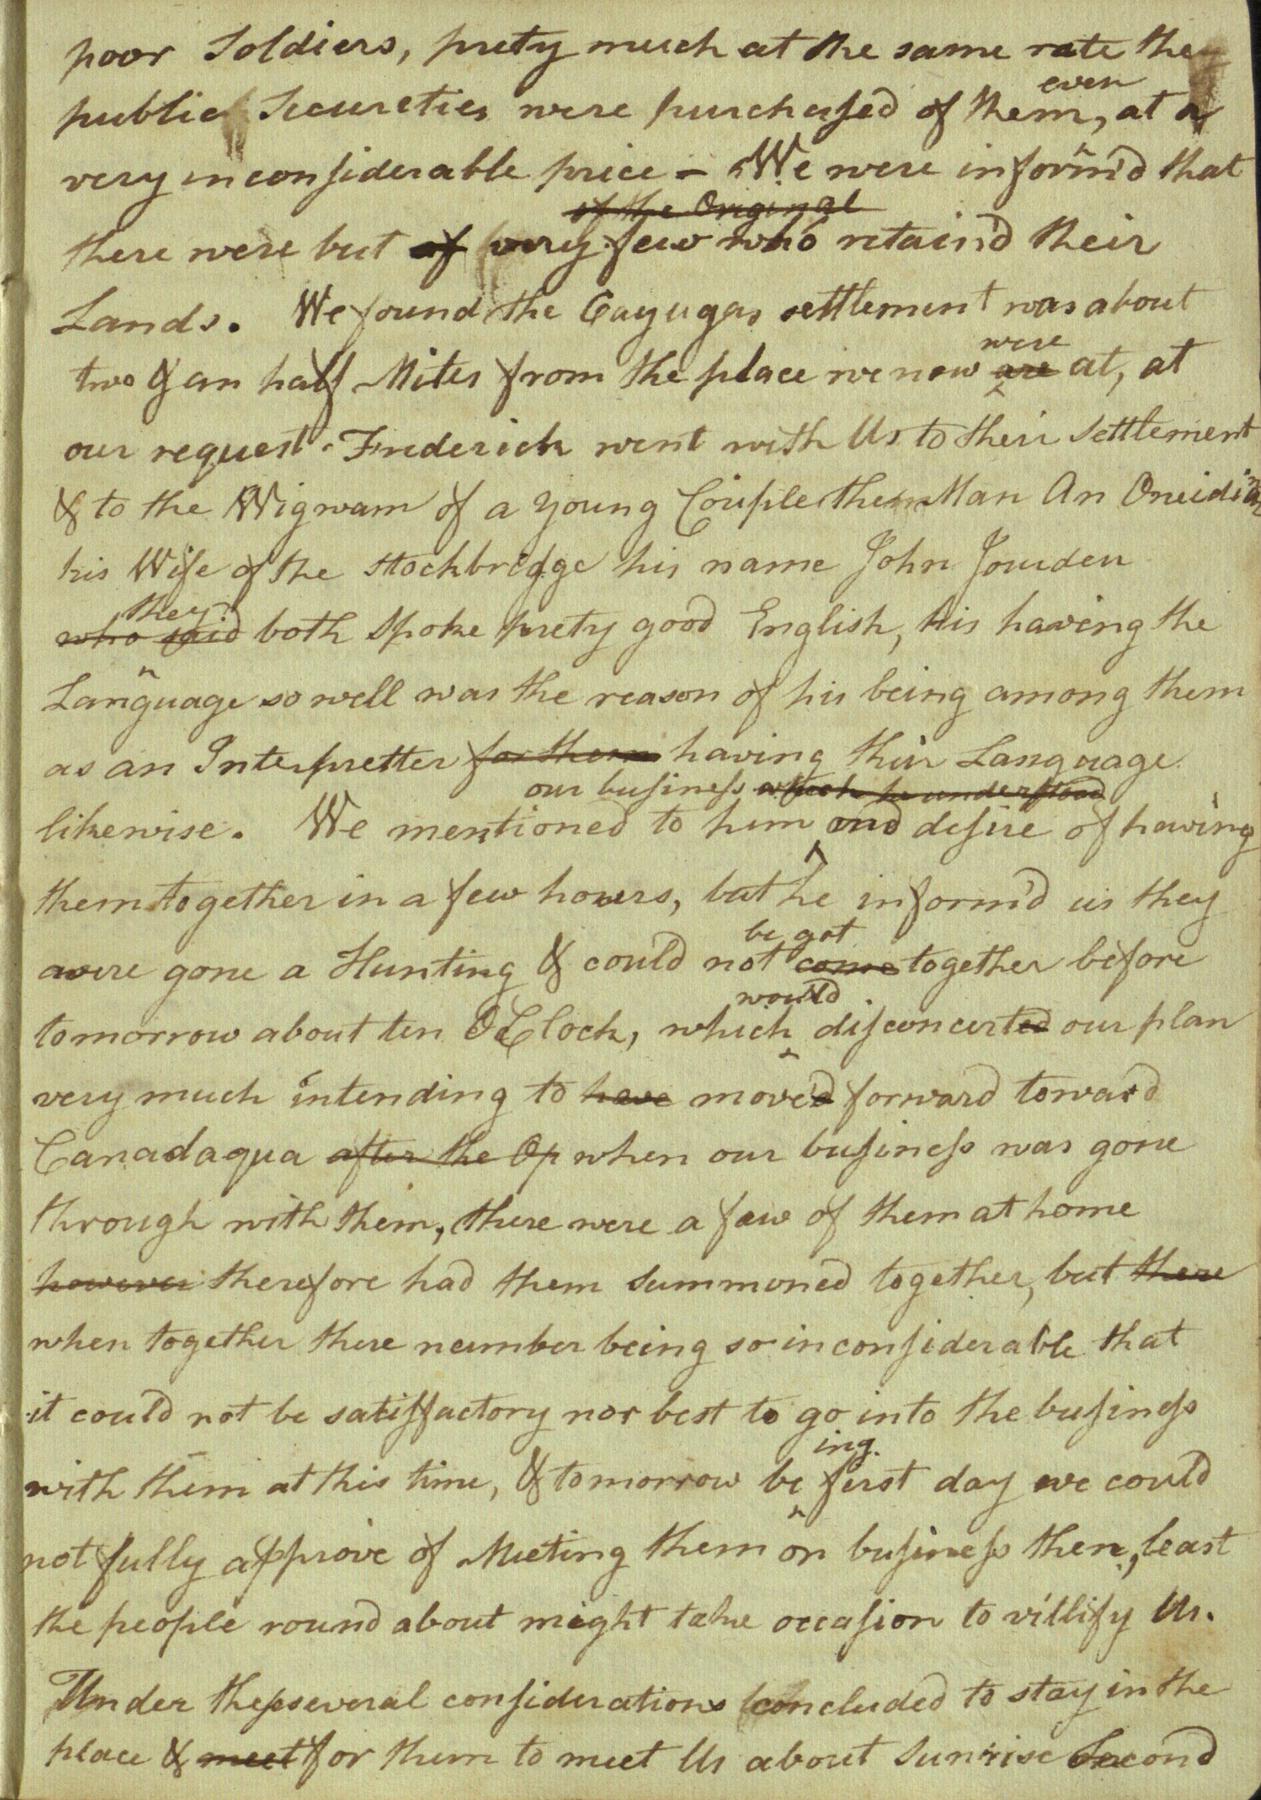 poor Soldiers, prety much at the same rate the
public Secureties were purchased of them, even at a
very inconsiderable price – We were inform'd that
of the Original
there were but of very few who retain'd their
Lands. We found the Cayugas settlement was about
were
two & an half Miles from the place we now are at, at
our request Frederick went with Us to their Settlement
& to the Wigwam of a young Couple the Man An Oneidian
his Wife of the Stockbridge his name John Jourden
they
who said both Spoke prety good English, his having the
Language so well was the reason of his being among them
as an Interpretter for them having their Language
our business which he understood
likewise. We mentioned to him and desire of having
them together in a few hours, but he inform'd us they
be got
were gone a Hunting & could not come together before
would
tomorrow about ten OClock, which disconcerted our plan
very much intending to have moved forward toward
Canadaqua after the Op when our business was gone
through with them, there were a few of them at home
however therefore had them Summoned together, but there
when together there number being so inconsiderable that
it could not be satisfactory nor best to go into the business
ing
with them at this time, & tomorrow be first day we could
not fully approve of Meeting them on business then, least
the people round about might take occasion to villify Us.
Under these several considerations concluded to stay in the
place & meet for them to meet Us about Sunrise Second